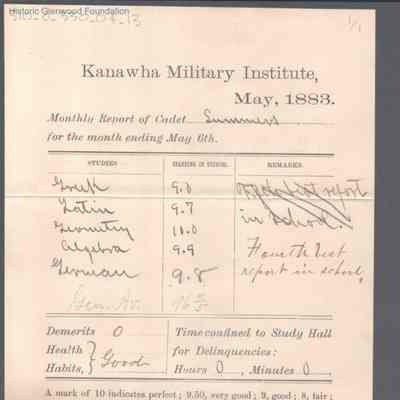 Historic Glenwood Foundation
1/1
Kanawha Military Institute,
May, 1883.
Monthly Report of Cadet Summers
for the month ending May 6th.
STUDIES STANDING IN STUDIES. REMARKS.
Greek 9.8 report
Latin 9.7 in school.
Geometry 10.0
Algebra 9.9 Fourth best
German 9.8 report in school.
Gen. Av.
Demerits 0 Time confined to Study Hall
Health } Good for Delinquencies:
Habits, Hours 0, Minutes 0.
A mark of 10 indicates perfect; 9.50, very good; 9, good; 8, fair;